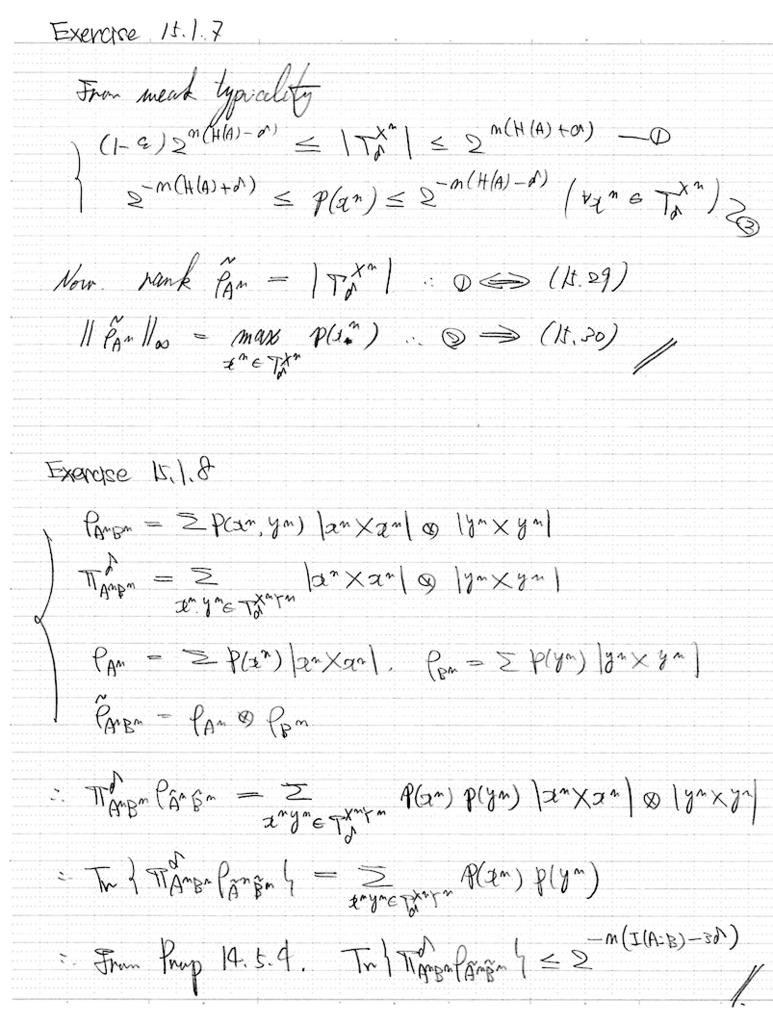 Exercise 15.1.7
From weak typicality
(1-ε)2^{n(H(A)-δ)} ≤ |T_δ^{X^n}| ≤ 2^{n(H(A)+δ)} —①
2^{-n(H(A)+δ)} ≤ p(x^n) ≤ 2^{-n(H(A)-δ)} (∀x^n ∈ T_δ^{X^n}) ②
Now. rank ρ̃_{A^n} = |T_δ^{X^n}| ∴ ① ⟺ (15.29)
‖ρ̃_{A^n}‖_∞ = max_{x^n ∈ T_δ^{X^n}} p(x^n) ∴ ② ⟹ (15.30) //
Exercise 15.1.8
ρ_{A^nB^n} = Σ p(x^n, y^n) |x^n⟩⟨x^n| ⊗ |y^n⟩⟨y^n|
Π^δ_{A^nB^n} = Σ_{x^n y^n ∈ T_δ^{X^nY^n}} |x^n⟩⟨x^n| ⊗ |y^n⟩⟨y^n|
ρ_{A^n} = Σ p(x^n) |x^n⟩⟨x^n|. ρ_{B^n} = Σ p(y^n) |y^n⟩⟨y^n|
ρ̃_{A^nB^n} = ρ_{A^n} ⊗ ρ_{B^n}
∴ Π^δ_{A^nB^n} ρ_{Ã^nB̃^n} = Σ_{x^n y^n ∈ T_δ^{X^nY^n}} p(x^n) p(y^n) |x^n⟩⟨x^n| ⊗ |y^n⟩⟨y^n|
∴ Tr{Π^δ_{A^nB^n} ρ_{Ã^nB̃^n}} = Σ_{x^n y^n ∈ T_δ^{X^nY^n}} p(x^n) p(y^n)
∴ From Prop 14.5.4. Tr{Π^δ_{A^nB^n} ρ_{Ã^nB̃^n}} ≤ 2^{-n(I(A:B)-3δ)} //